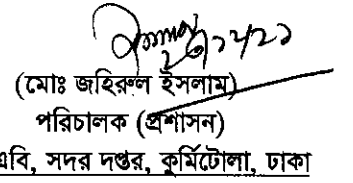 (মোঃ জহিরুল ইসলাম)
পরিচালক (প্রশাসন)
এবি, সদর দপ্তর, কুর্মিটোলা, ঢাকা